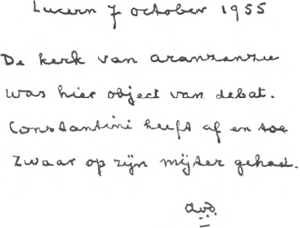 Lucern 7 october 1955
De kerk van aranzanzu
was hier object van debat.
Constantini heeft af en toe
zwaar op zijn mijter gehad.